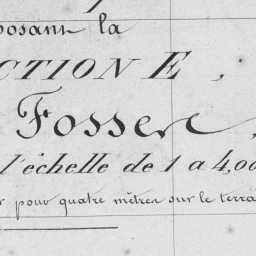 posant la
CTION E,
Fosser,
l'échelle de 1 a 4,00
r pour quatre mètres sur le terra